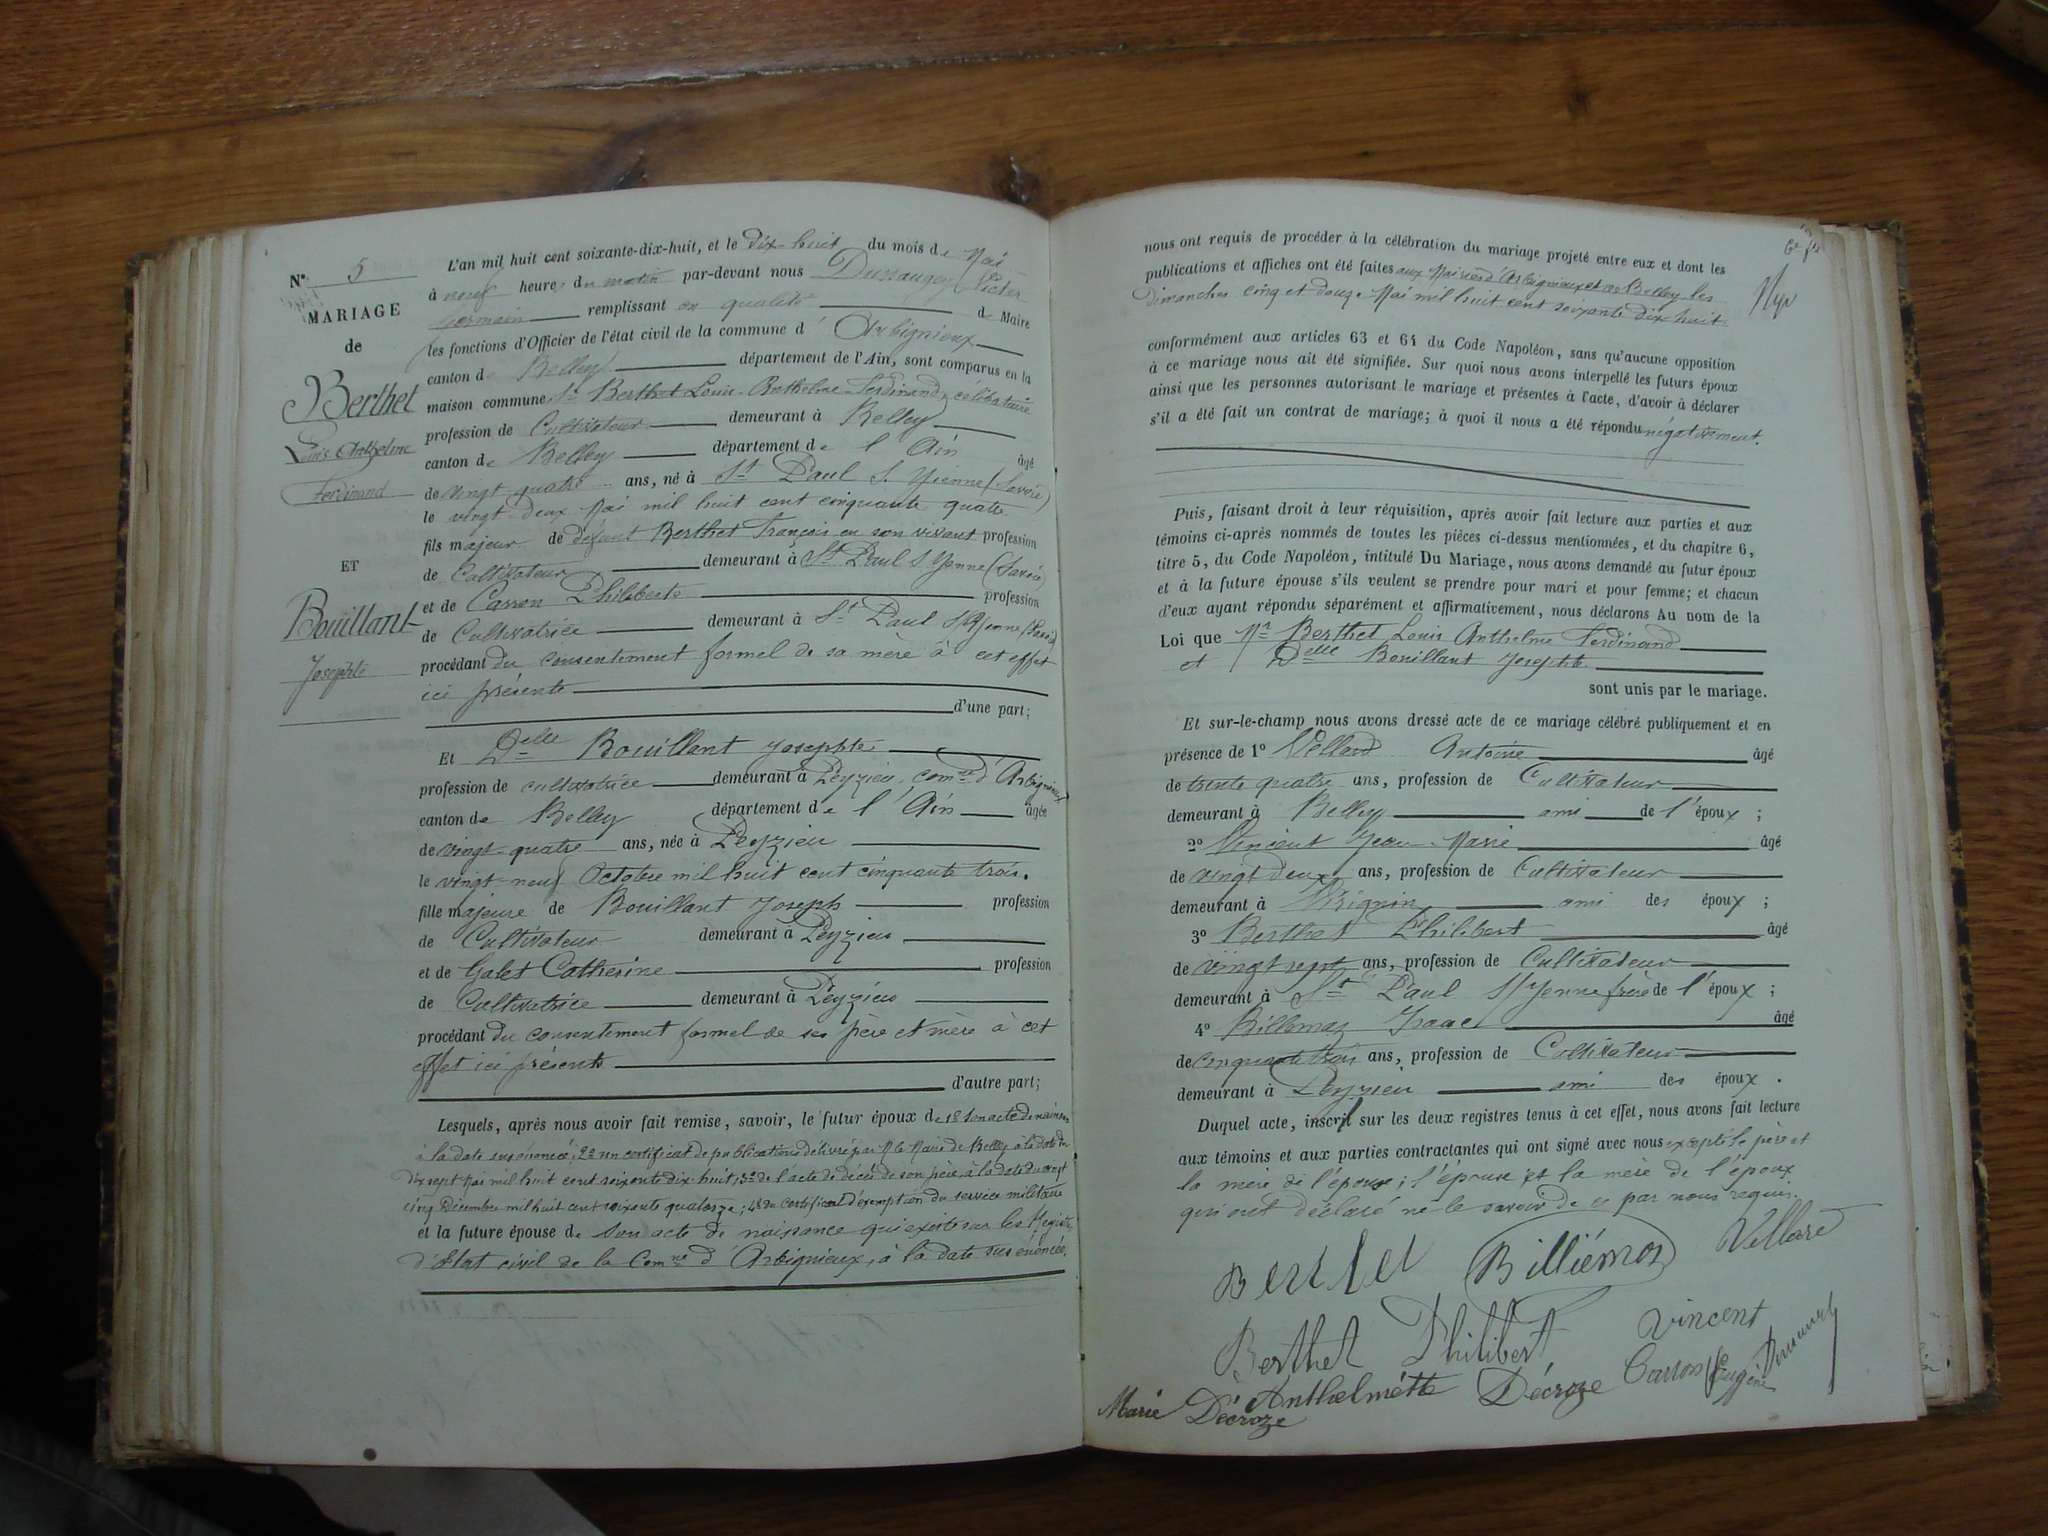 N° 5
MARIAGE
de
Berthet
Louis Anthelme
Ferdinand
ET
Bouillant
Josephte
L'an mil huit cent soixante-dix-huit, et le dix-huit du mois de Mai
à neuf heures du matin par-devant nous Dunauger Victor
Germain remplissant en qualité de Maire
les fonctions d'Officier de l'état civil de la commune d' Arbignieux
canton de Belley département de l'Ain, sont comparus en la
maison commune Sr Berthet Louis Anthelme Ferdinand, célibataire
profession de Cultivateur demeurant à Belley
canton de Belley département de l'Ain âgé
de vingt quatre ans, né à St Paul S. Yenne (Savoie)
le vingt-deux Mai mil huit cent cinquante quatre
fils majeur de défunt Berthet François en son vivant profession
de Cultivateur demeurant à St Paul S Yenne (Savoie)
et de Carron Philiberte profession
de Cultivatrice demeurant à St Paul S/Yenne (Savoie)
procédant du consentement formel de sa mère à cet effet
ici présente
d'une part;
Et Delle Bouillant Josephte
profession de cultivatrice demeurant à Peyzieu, comne d'Arbignieux
canton de Belley département de l'Ain âgée
de vingt-quatre ans, née à Peyzieu
le vingt-neuf Octobre mil huit cent cinquante trois.
fille majeure de Bouillant Joseph profession
de Cultivateur demeurant à Peyzieu
et de Galet Catherine profession
de Cultivatrice demeurant à Peyzieu
procédant du consentement formel de ses père et mère à cet
effet ici présents
d'autre part;
Lesquels, après nous avoir fait remise, savoir, le futur époux de 1° son acte de naissance
à la date sus énoncée; 2° un certificat de publications délivré par M le Maire de Belley à la date du
dix sept Mai mil huit cent soixante dix huit; 3° de l'acte de décès de son père, à la date du vingt
cinq Décembre mil huit cent soixante quatorze; 4° du certificat d'exemption du service militaire
et la future épouse de Son acte de naissance qui existe sur les Registres
d'Etat civil de la Comne d'Arbignieux, à la date sus énoncée.
nous ont requis de procéder à la célébration du mariage projeté entre eux et dont les
publications et affiches ont été faites aux Mairies d'Arbignieux et de Belley les
Dimanches cinq et douze Mai mil huit cent soixante dix huit
conformément aux articles 63 et 64 du Code Napoléon, sans qu'aucune opposition
à ce mariage nous ait été signifiée. Sur quoi nous avons interpellé les futurs époux
ainsi que les personnes autorisant le mariage et présentes à l'acte, d'avoir à déclarer
s'il a été fait un contrat de mariage; à quoi il nous a été répondu négativement.
Puis, faisant droit à leur réquisition, après avoir fait lecture aux parties et aux
témoins ci-après nommés de toutes les pièces ci-dessus mentionnées, et du chapitre 6,
titre 5, du Code Napoléon, intitulé Du Mariage, nous avons demandé au futur époux
et à la future épouse s'ils veulent se prendre pour mari et pour femme; et chacun
d'eux ayant répondu séparément et affirmativement, nous déclarons Au nom de la
Loi que Mr Berthet Louis Anthelme Ferdinand
et Delle Bouillant Josephte
sont unis par le mariage.
Et sur-le-champ nous avons dressé acte de ce mariage célébré publiquement et en
présence de 1° Vellard Antoine âgé
de trente quatre ans, profession de Cultivateur
demeurant à Belley ami de l'époux ;
2° Vincent Jean-Marie âgé
de vingt deux ans, profession de Cultivateur
demeurant à Virignin ami des époux ;
3° Berthet Philibert âgé
de vingt sept ans, profession de Cultivateur
demeurant à St Paul S/Yenne frère de l'époux ;
4° Billiemaz Isaac âgé
de cinquante trois ans, profession de Cultivateur
demeurant à Peyzieu ami des époux .
Duquel acte, inscrit sur les deux registres tenus à cet effet, nous avons fait lecture
aux témoins et aux parties contractantes qui ont signé avec nous excepté le père et
la mère de l'épouse; l'épouse et la mère de l'époux
qui ont déclaré ne le savoir de ce par nous requis.
Berthet Billiémaz Vellard
Berthet Philibert Vincent
Anthelmette Décroze Carron Eugène
Marie Décroze